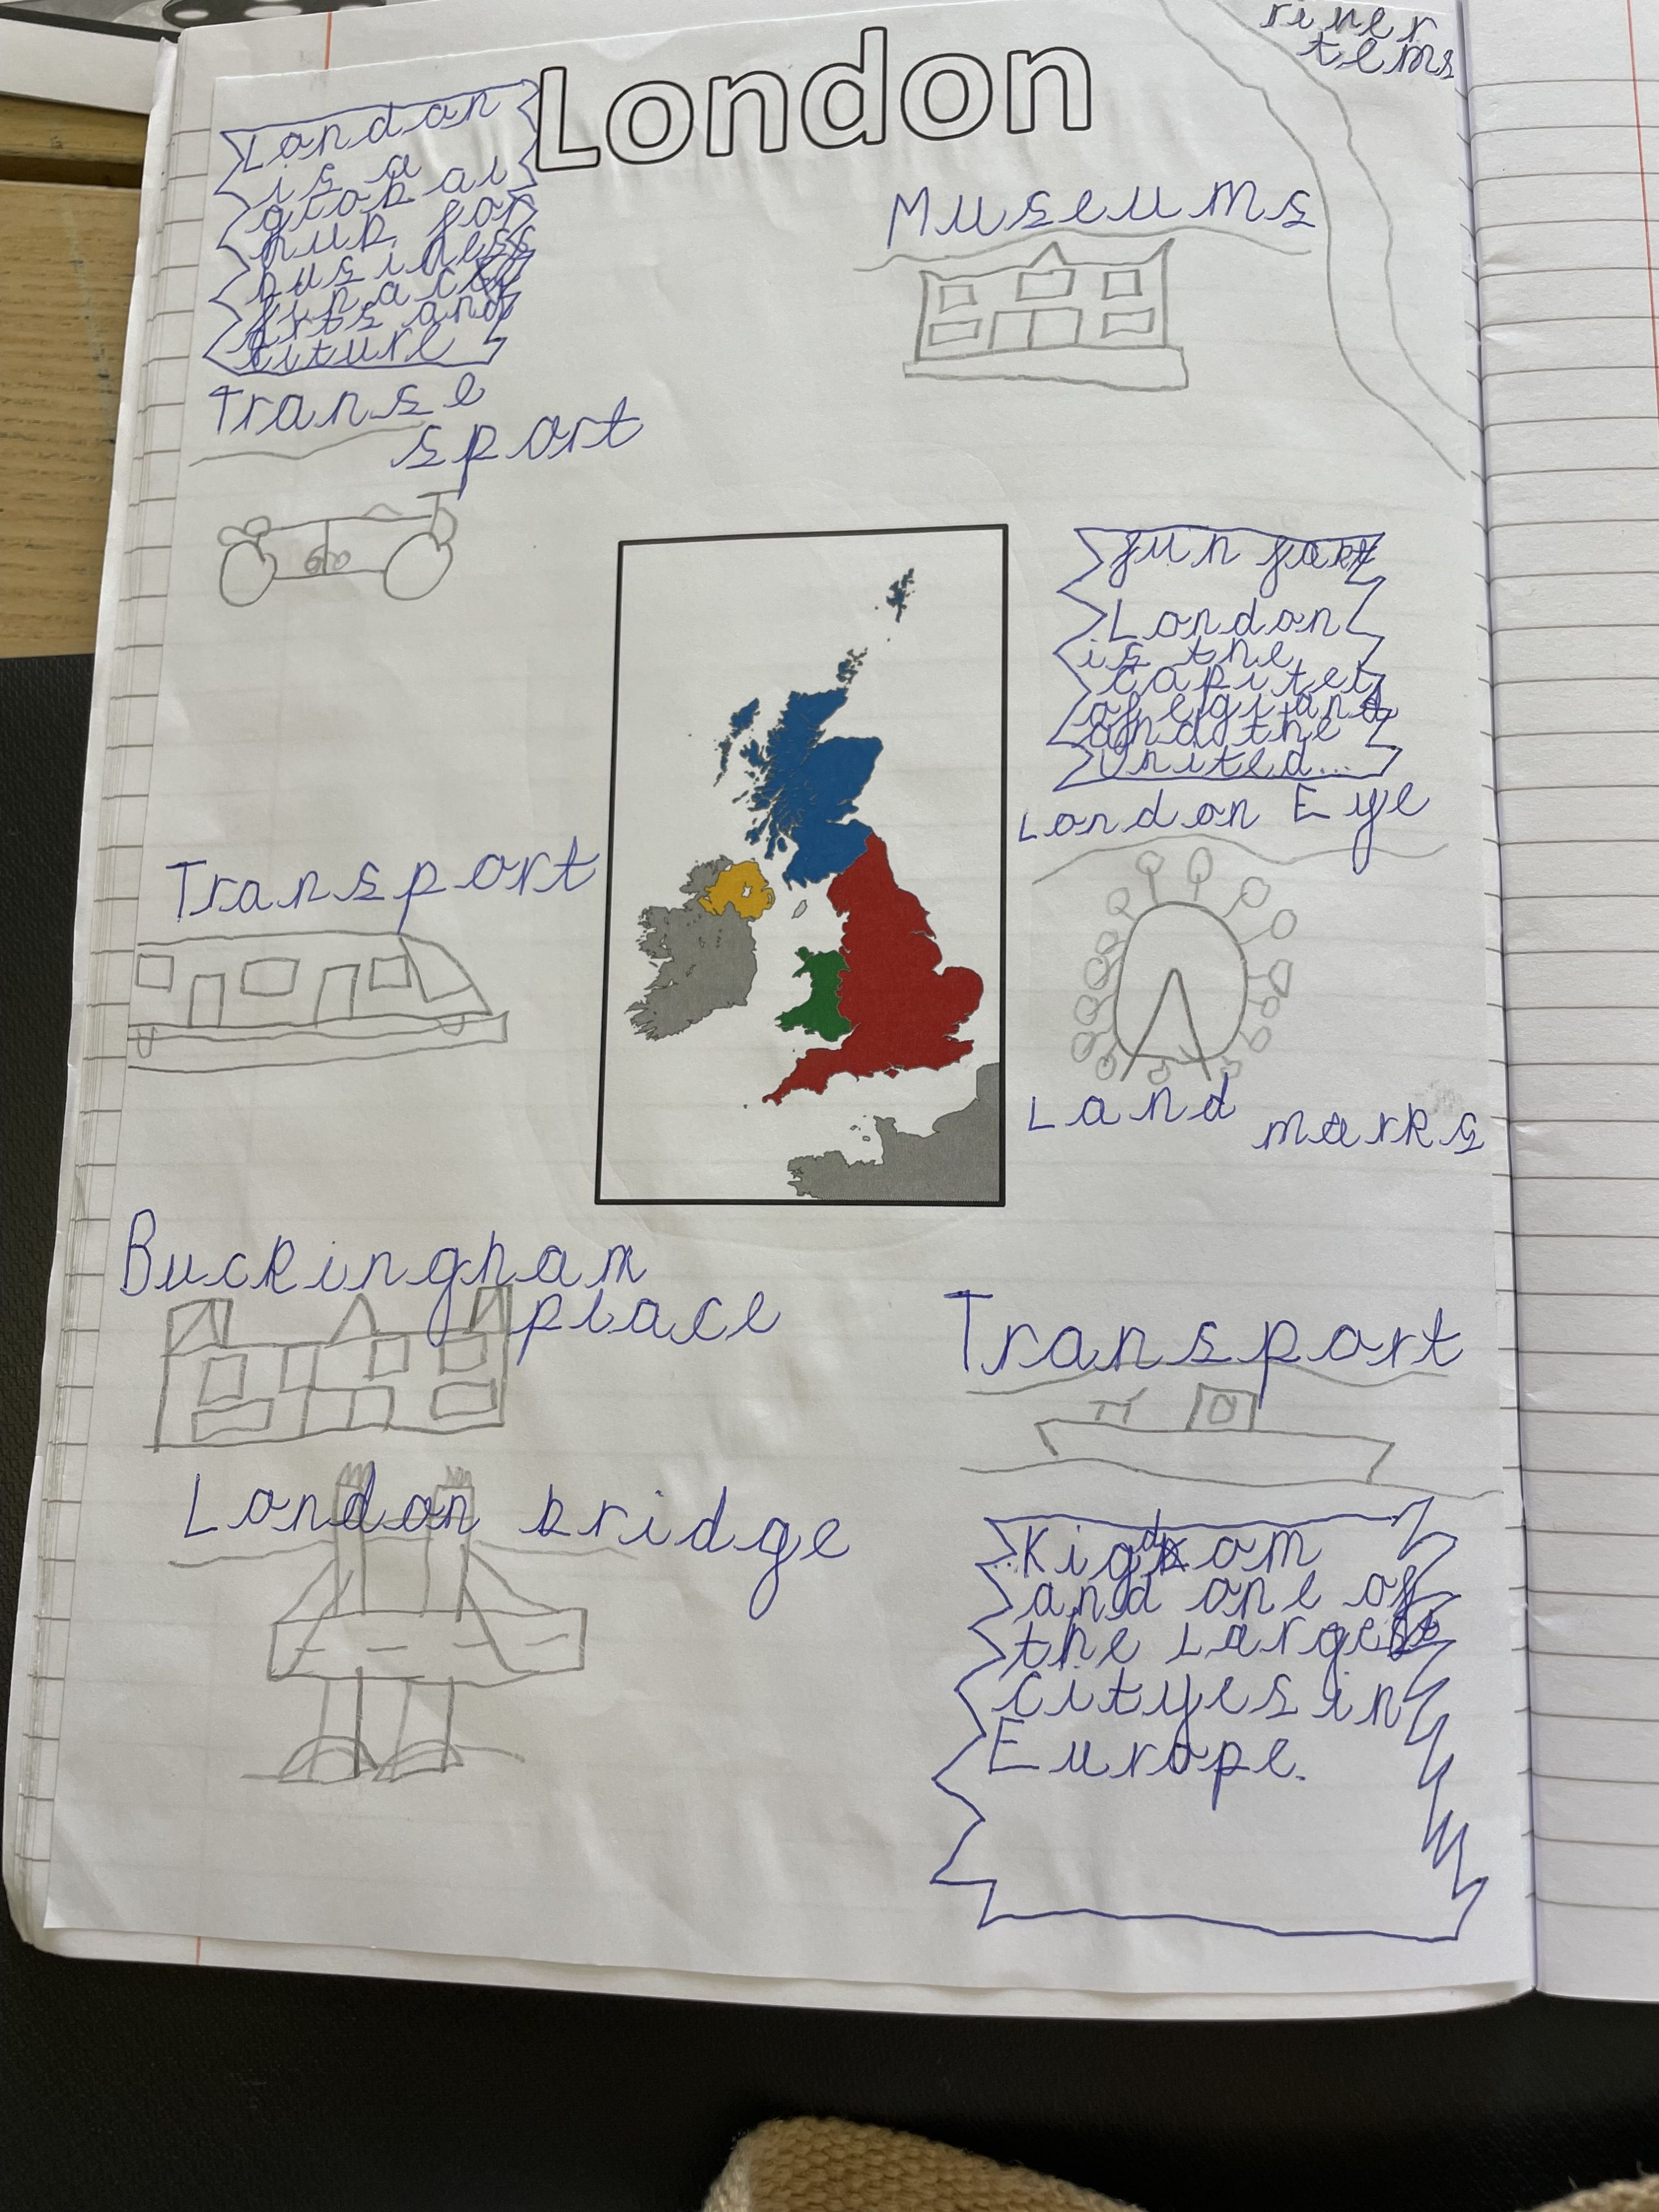 London
river
tems
London
is a
glob al
hub for
business
finance
arts and
Museums
Transe
sport
fun fact
London
is the
capitel
of egland
and the
United...
London Eye
Transport
Land
marks
Buckingham
place
Transport
London bridge
...Kigdom
and one of
the largest
cityes in
Europe.